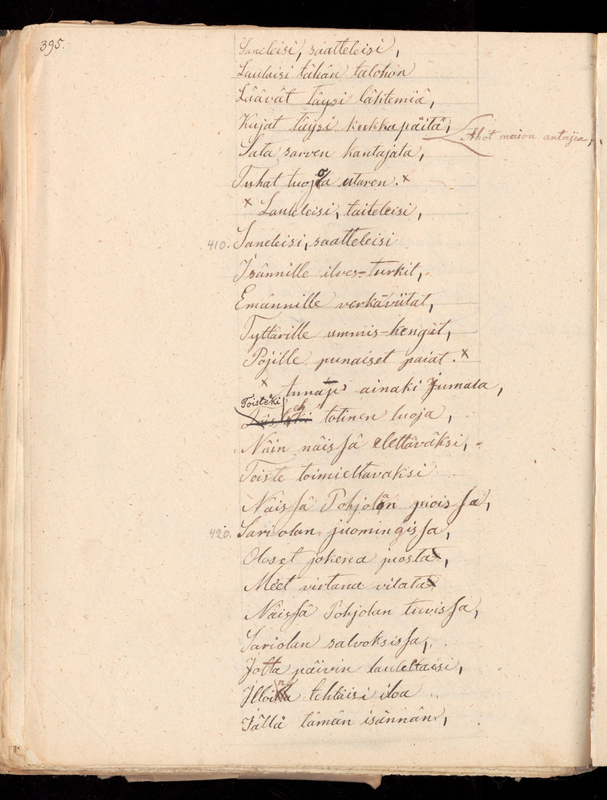 395.
Saneleisi, saatteleisi,
Laulaisi tähän talohon
Läävät täysi lähtemiä,
Kujat täysi kukkapäitä,
Ahot maion antajia,
Sata sarven kantajata,
Tuhat tuojoa utaren. x
x Lauleleisi, taiteleisi,
410. Saneleisi, saatteleisi
Isännille ilves-turkit,
Emännille verkaviitat,
Tyttärille ummis-kengät,
Pojille punaiset paiat. x
x ainaki Jumala,
Toisteki
totinen luoja,
Näin näissä elettäväksi,
Toiste toimiettavaksi
Näissä Pohjolan pioissa,
420. Sariolan juomingissa,
Oloset jokena juosta,
Meet virtana vilata
Näissä Pohjolan tuvissa,
Sariolan salvoksissa,
Jotta päivin lauleltaisi,
tehtäisi iloa
Tällä tämän isännän,